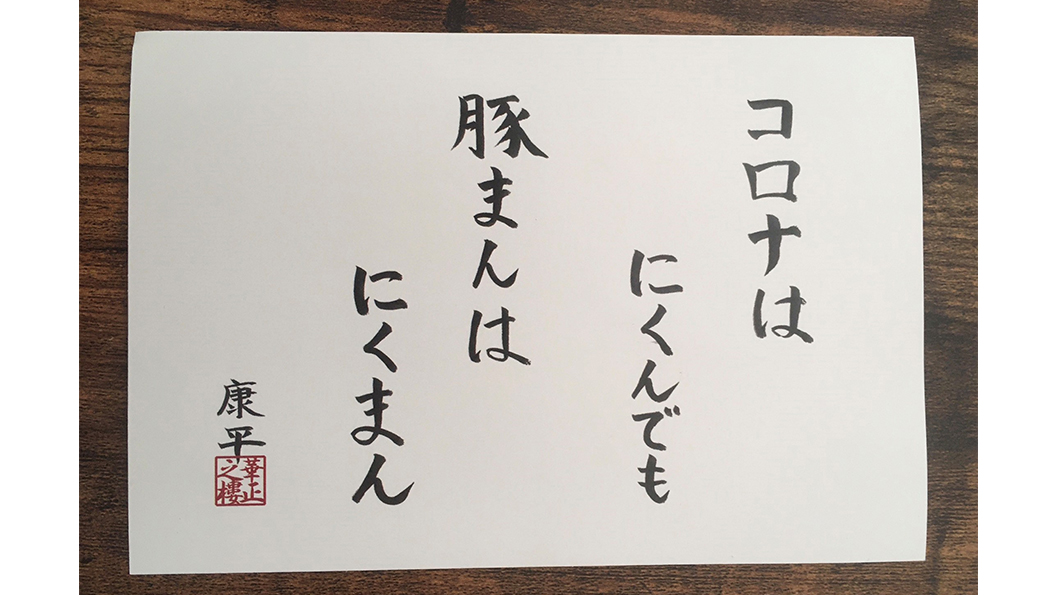 コロナは
にくんでも
豚まんは
にくまん
康平
華正
之樓